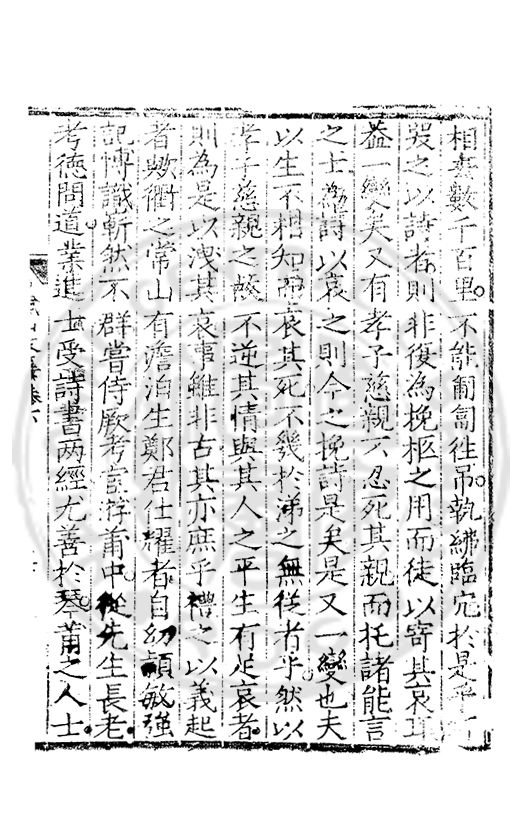 相去數千百里不能匍匐徃吊執紼臨穴於是乎
哭之以詩者則非復為挽柩之用而徒以寄其哀耳
葢一變矣又有孝子慈親不忍死其親而托諸能言
之士為詩以哀之則今之挽詩是矣是又一變也夫
以生不相知而哀其死不幾於涕之無從者乎然以
孝子慈親之故不逆其情與其人之平生有足哀者
則為是以洩其哀事雖非古其亦庶乎禮之以義起
者歟衢之常山有澹泊生鄭君仕耀者自幼穎敏强
記博識嶄然不群嘗侍厥考宦游莆中從先生長老
考德問道業進士受詩書两經尤善於琴莆之人士